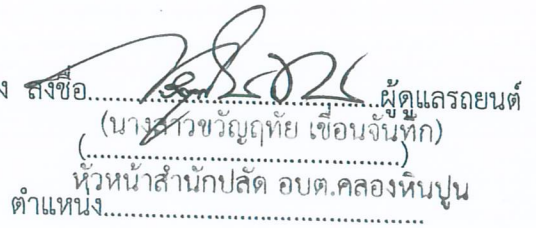 ง ลงชื่อ....................................ผู้ดูแลรถยนต์
(นางสาวขวัญฤทัย เขื่อนจันทึก)
(........................................)
หัวหน้าสำนักปลัด อบต.คลองหินปูน
ตำแหน่ง........................................